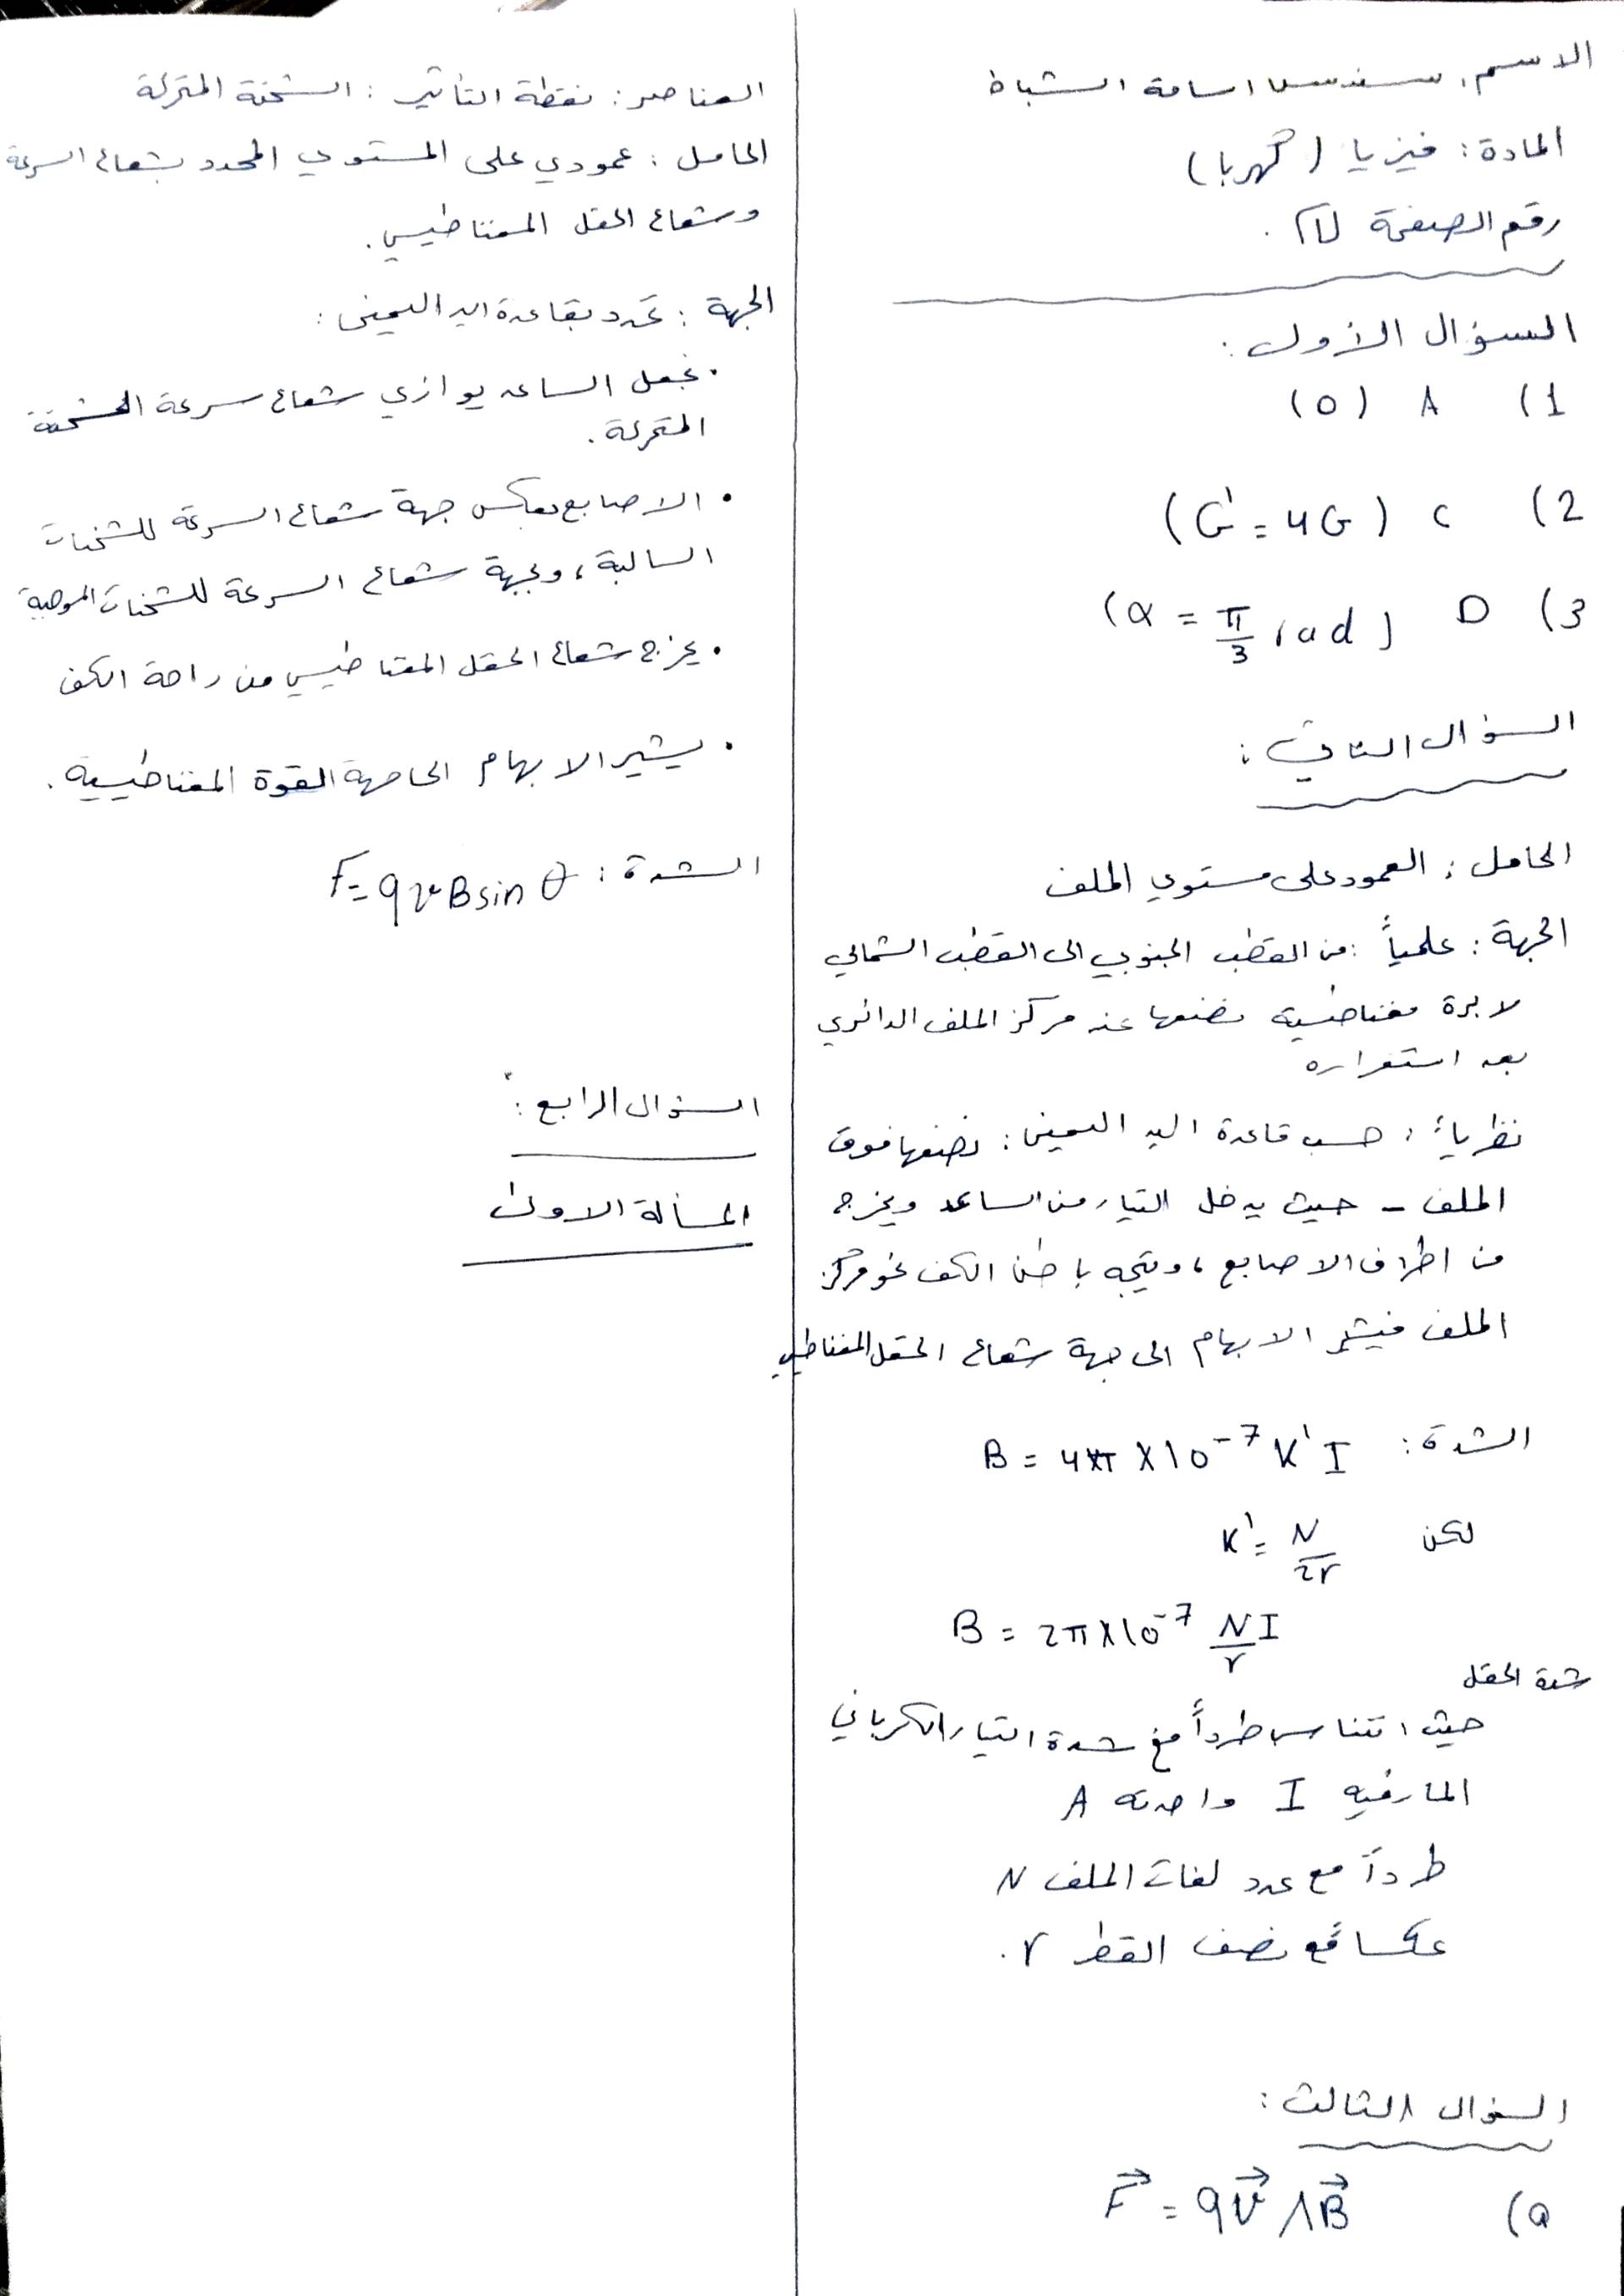 الاسم: سندس اسامة الشباط
المادة: فيزيا (كهربا)
رقم الصفحة
السؤال الأول:
1) A (0)
2) C (G' = 4G)
3) D (α = π/3 rad)
السؤال الثاني:
الحامل: العمود على مستوي الملف
الجهة: علمياً: من القطب الجنوبي الى القطب الشمالي
لابرة مغناطيسية نضعها عند مركز الملف الدائري
بعد استقراره
نظرياً: حسب قاعدة اليد اليمنى: نضعها فوق
الملف - حيث يدخل التيار من الساعد ويخرج
من اطراف الاصابع، ويتجه باطن الكف نحو مركز
الملف فيشير الابهام الى جهة شعاع الحقل المغناطيسي
الشدة: B = 4π × 10⁻⁷ K' I
لكن K' = N/2r
B = 2π × 10⁻⁷ NI/r
شدة الحقل
حيث تتناسب طرداً مع شدة التيار الكهربائي
المار فيه I واحدته A
طرداً مع عدد لفات الملف N
عكساً مع نصف القطر r.
السؤال الثالث:
a) F⃗ = qv⃗ ∧ B⃗
العناصر: نقطة التأثير: الشحنة المتحركة
الحامل: عمودي على المستوي المحدد بشعاع السرعة
وشعاع الحقل المغناطيسي.
الجهة: تحدد بقاعدة اليد اليمنى:
• نجعل الساعد يوازي شعاع سرعة الشحنة
المتحركة.
• الاصابع بعكس جهة شعاع السرعة للشحنات
السالبة، وبجهة شعاع السرعة للشحنات الموجبة
• يخرج شعاع الحقل المغناطيسي من راحة الكف
• يشير الابهام الى جهة القوة المغناطيسية.
الشدة: F = qvB sin θ
السؤال الرابع:
المسألة الاولى